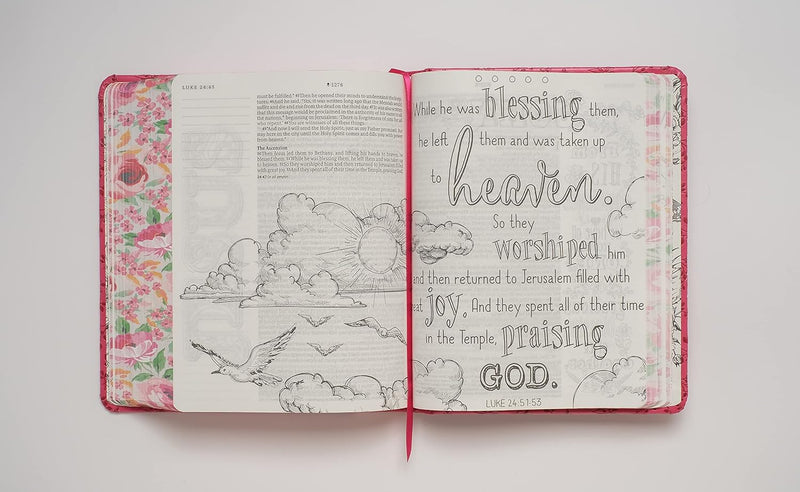 LUKE 24:45
1276
must be fulfilled." Then he opened their minds to understand the Scrip-
tures. And he said, "Yes, it was written long ago that the Messiah would
suffer and die and rise from the dead on the third day. It was also written
that this message would be proclaimed in the authority of his name to all
the nations, beginning in Jerusalem: 'There is forgiveness of sins for all
who repent.' You are witnesses of all these things.
"And now I will send the Holy Spirit, just as my Father promised. But
stay here in the city until the Holy Spirit comes and fills you with power
from heaven."
The Ascension
Then Jesus led them to Bethany, and lifting his hands to heaven, he
blessed them. While he was blessing them, he left them and was taken up
to heaven. So they worshiped him and then returned to Jerusalem filled
with great joy. And they spent all of their time in the Temple, praising God.
While he was blessing them,
he left them and was taken up
to heaven.
So they
worshiped him
and then returned to Jerusalem filled with
eat joy. And they spent all of their time
in the Temple, praising
GOD.
LUKE 24:51-53